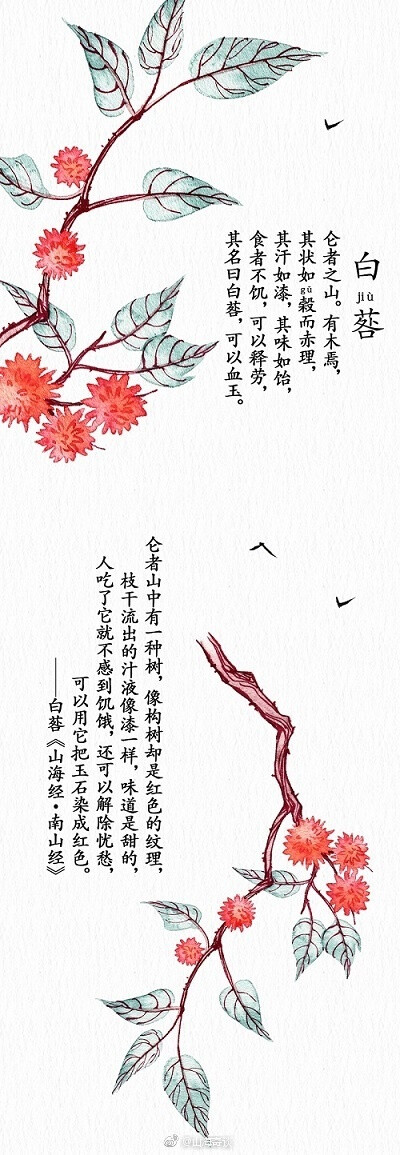 白䓘
jiù
仑者之山。有木焉，
其状如榖而赤理，
gǔ
其汗如漆，其味如饴，
食者不饥，可以释劳，
其名曰白䓘，可以血玉。
仑者山中有一种树，像构树却是红色的纹理，
枝干流出的汁液像漆一样，味道是甜的，
人吃了它就不感到饥饿，还可以解除忧愁，
可以用它把玉石染成红色。
——白䓘《山海经·南山经》